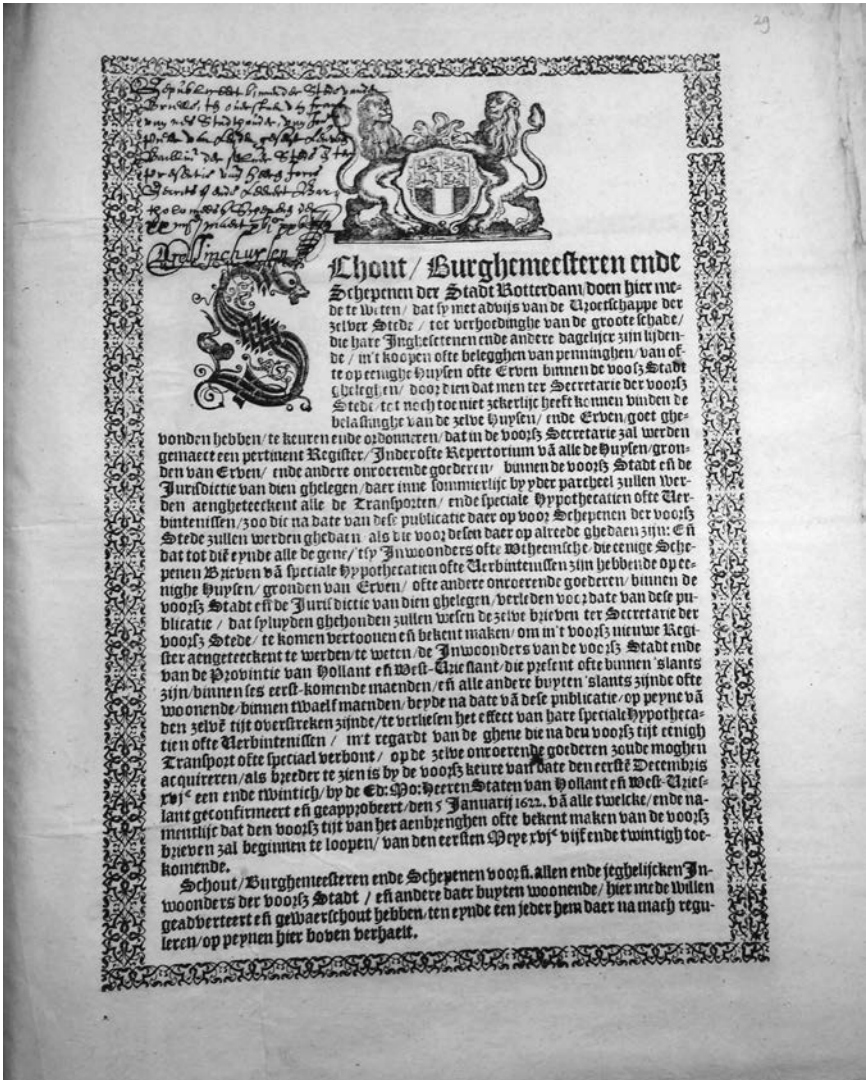 29
Gepubliceert binnen der Stede vanden
Briele, ter
Stadthouder, van
van
Bailliu der selver Stede
presentie van
Gerrits ende Bar-
tholomeusz Schepenen
SChout / Burghemeesteren ende
Schepenen der Stadt Rotterdam / doen hier me-
de te weten / dat sy met advijs van de Vroetschappe der
zelver Stede / tot verhoedinghe van de groote schade /
die hare Inghesetenen ende andere dagelijcx zijn lijden-
de / in't koopen ofte belegghen van penninghen / van of-
te op eenighe Huysen ofte Erven binnen de voorsz Stadt
gheleghen / door dien dat men ter Secretarie der voorsz
Stede / tot noch toe niet zekerlijc heeft konnen vinden de
belastinghe van de zelve Huysen / ende Erven / goet ghe-
vonden hebben / te keuren ende ordonneren / dat in de voorsz Secretarie zal werden
gemaect een pertinent Register / Inder ofte Repertorium vā alle de Huysen / gron-
den van Erven / ende andere onroerende goederen / binnen de voorsz Stadt eñ de
Jurisdictie van dien ghelegen / daer inne sommierlijc by yder parcheel zullen wer-
den aengheteeckent alle de Transporten / ende speciale Hypothecatien ofte Ver-
bintenissen / zoo die na date van dese publicatie daer op voor Schepenen der voorsz
Stede zullen werden ghedaen / als die voor desen daer op alreede ghedaen zijn: Eñ
dat tot diē eynde alle de gene / tsy Inwoonders ofte Wtheemsche / die eenige Sche-
penen Brieven vā speciale Hypothecatien ofte Verbintenissen zijn hebbende op ee-
nighe Huysen / gronden van Erven / ofte andere onroerende goederen / binnen de
voorsz Stadt eñ de Jurisdictie van dien ghelegen / verleden voor date van dese pu-
blicatie / dat syluyden ghehouden zullen wesen de zelve brieven ter Secretarie der
voorsz Stede / te komen vertoonen eñ bekent maken / om in't voorsz nieuwe Regi-
ster aengeteeckent te werden / te weten / de Inwoonders van de voorsz Stadt ende
van de Provintie van Hollant eñ West-Vrieslant / die present ofte binnen 'slants
zijn / binnen ses eerst-komende maenden / eñ alle andere buyten 'slants zijnde ofte
woonende / binnen twaelf maenden / beyde na date vā dese publicatie / op peyne vā
den zelvē tijt overstreken zijnde / te verliesen het effect van hare speciale Hypotheca-
tien ofte Verbintenissen / in't regardt van de ghene die na den voorsz tijt eenigh
Transport ofte speciael verbont / op de zelve onroerende goederen zoude moghen
acquireren / als breeder te zien is by de voorsz keure van date den eerstē Decembris
xvjᶜ een ende twintich / by de Ed: Mo: Heeren Staten van Hollant eñ West-Vries-
lant geconfirmeert eñ geapprobeert / den 5 Januarij 1622. vā alle twelcke / ende na-
mentlijc dat den voorsz tijt van het aenbrenghen ofte bekent maken van de voorsz
brieven zal beginnen te loopen / van den eersten Meye xvjᶜ vijf ende twintigh toe-
komende.
Schout / Burghemeesteren ende Schepenen voorñ. allen ende jeghelijcken In-
woonders der voorsz Stadt / eñ andere daer buyten woonende / hier mede willen
geadverteert eñ gewaerschout hebben / ten eynde een jeder hem daer na mach regu-
leren / op peynen hier boven verhaelt.